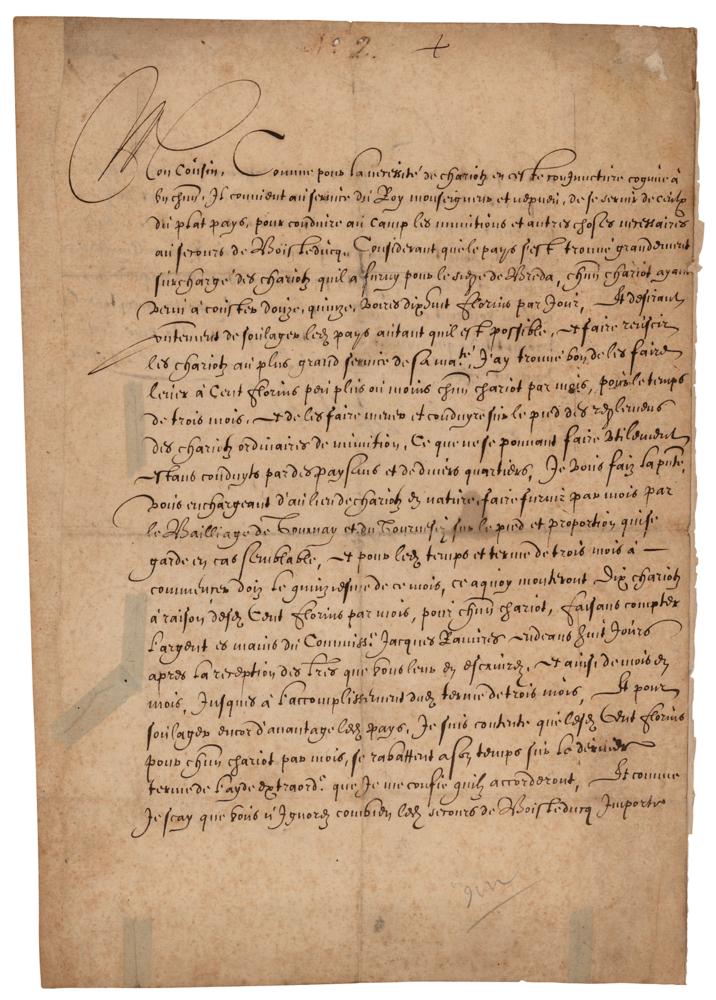 No 2. +
Mon Cousin, Comme pour la necessité de chariotz en ceste conjuncture cogneue à
un chūn, Il convient au service du Roy monseigneur et nepveu, de se servir de ceulx
du plat pays, pour conduire au Camp les munitions et autres choses necessaires
au secours de Bois leducq, Considerant que le pays s'est trouvé grandement
surchargé des chariotz qu'il a furny pour le siege de Breda, chūn chariot ayant
venu à couster douze, quinze, voires dixhuit florins par Jour, Et desirant
de soulager lesd pays autant qu'il est possible, et faire reuscir
les chariotz au plus grand service de sa ma.té, J'ay trouvé bon de les faire
lever à Cent florins peu plus ou moins chūn chariot par mois, pour le temps
de trois mois, et de les faire mener et conduyre sur le pied des reglemens
des chariotz ordinaires de munition, Ce que ne se pouvant faire utilement
estans conduyts par des paysans et de divers quartiers, Je vous faiz la pnte,
vous enchargeant d'au lieu de chariotz en nature, faire furnir par mois par
le Bailliage de Tournay et du Tournesiz sur le pied et proportion qui se
garde en cas semblable, et pour lesd temps et terme de trois mois à
commencer doiz le quinziesme de ce mois, ce a quoy monteront Dix chariotz
à raison desd Cent florins par mois, pour chūn chariot, faisans compter
l'argent es mains du Commiss.re Jacques Ramires endeans huit Jours
apres la reception des lr̄es que vous leur en escrirez, et ainsi de mois en
mois, Jusques à l'accomplissement dud terme de trois mois, Et pour
soulager encor d'avantage lesd pays, Je suis contente que lesd Cent florins
pour chūn chariot par mois, se rabattent a son temps sur le dernier
terme de l'ayde extraord.re que Je me confie qu'ilz accorderont, Et comme
Je sçay que vous n'Ignorez combien lesd secours de Bois leducq Importe